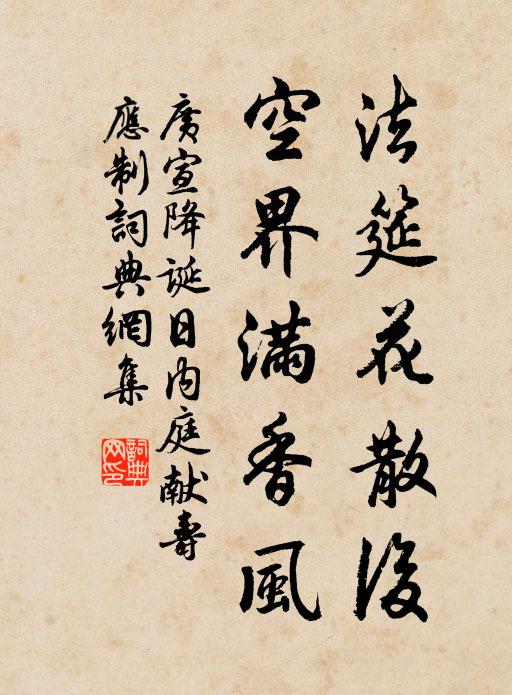 法筵花散後
空界滿香風
廣宣降誕日內庭献壽
應制詞典網集
詞典網印